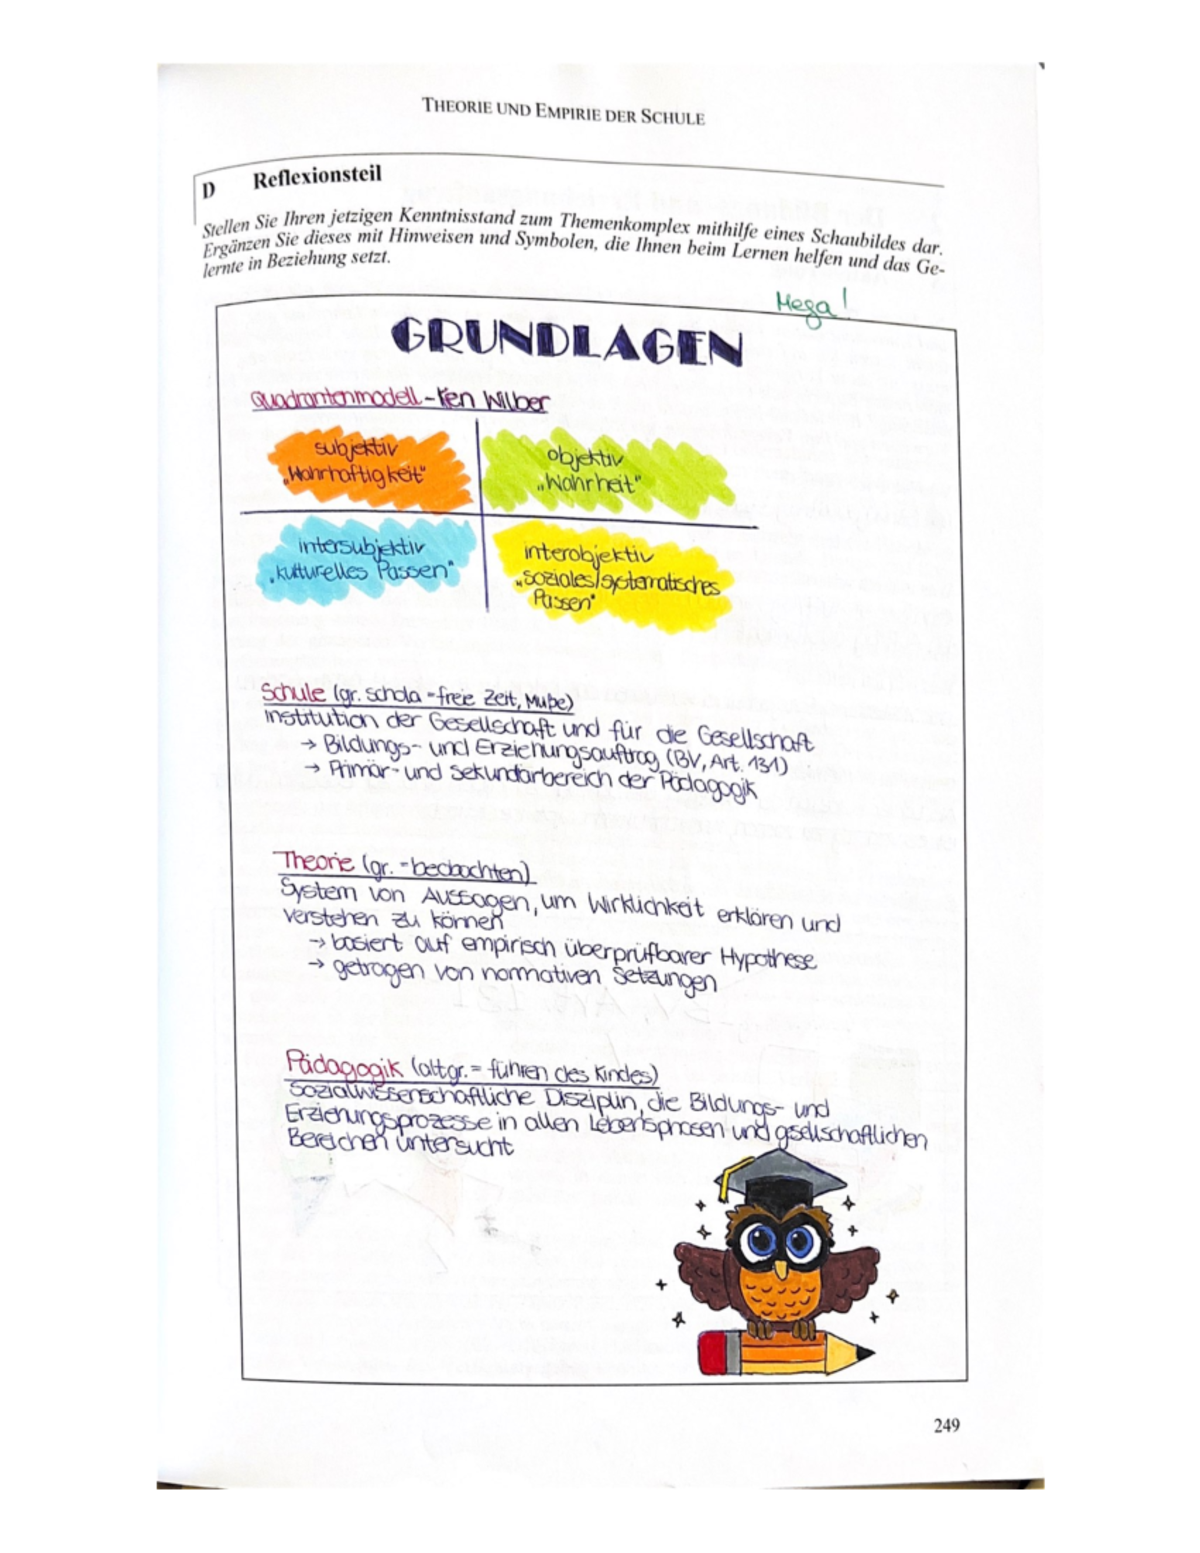 THEORIE UND EMPIRIE DER SCHULE
D Reflexionsteil
Stellen Sie Ihren jetzigen Kenntnisstand zum Themenkomplex mithilfe eines Schaubildes dar.
Ergänzen Sie dieses mit Hinweisen und Symbolen, die Ihnen beim Lernen helfen und das Ge-
lernte in Beziehung setzt.
Mega!
GRUNDLAGEN
Quadrantenmodell - Ken Wilber
subjektiv
„Wahrhaftigkeit"
objektiv
„Wahrheit"
intersubjektiv
„kulturelles Passen"
interobjektiv
„soziales/systematisches
Passen"
Schule (gr. schola = freie Zeit, Muße)
Institution der Gesellschaft und für die Gesellschaft
→ Bildungs- und Erziehungsauftrag (BV, Art. 131)
→ Primär- und Sekundärbereich der Pädagogik
Theorie (gr. = beobachten)
System von Aussagen, um Wirklichkeit erklären und
verstehen zu können
→ basiert auf empirisch überprüfbarer Hypothese
→ getragen von normativen Setzungen
Pädagogik (altgr. = führen des Kindes)
Sozialwissenschaftliche Disziplin, die Bildungs- und
Erziehungsprozesse in allen Lebensphasen und gsellschaftlichen
Bereichen untersucht
249